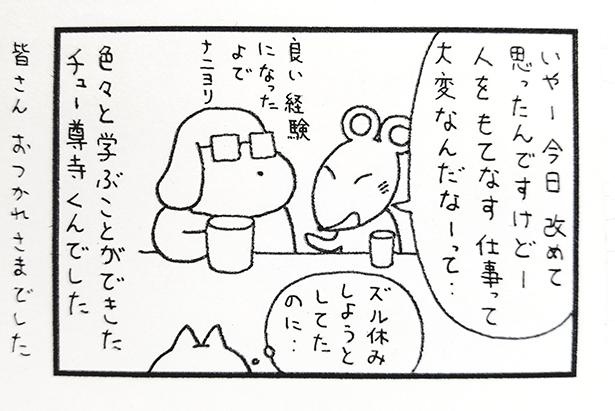 いやー 今日 改めて
思ったんですけどー
人を もてなす 仕事って
大変なんだなーって‥
良い 経験
になった
よで
ナニヨリ
ズル休み
しようと
してた
のに‥
色々と 学ぶことができた
チュー尊寺くんでした
皆さん おつかれさまでした